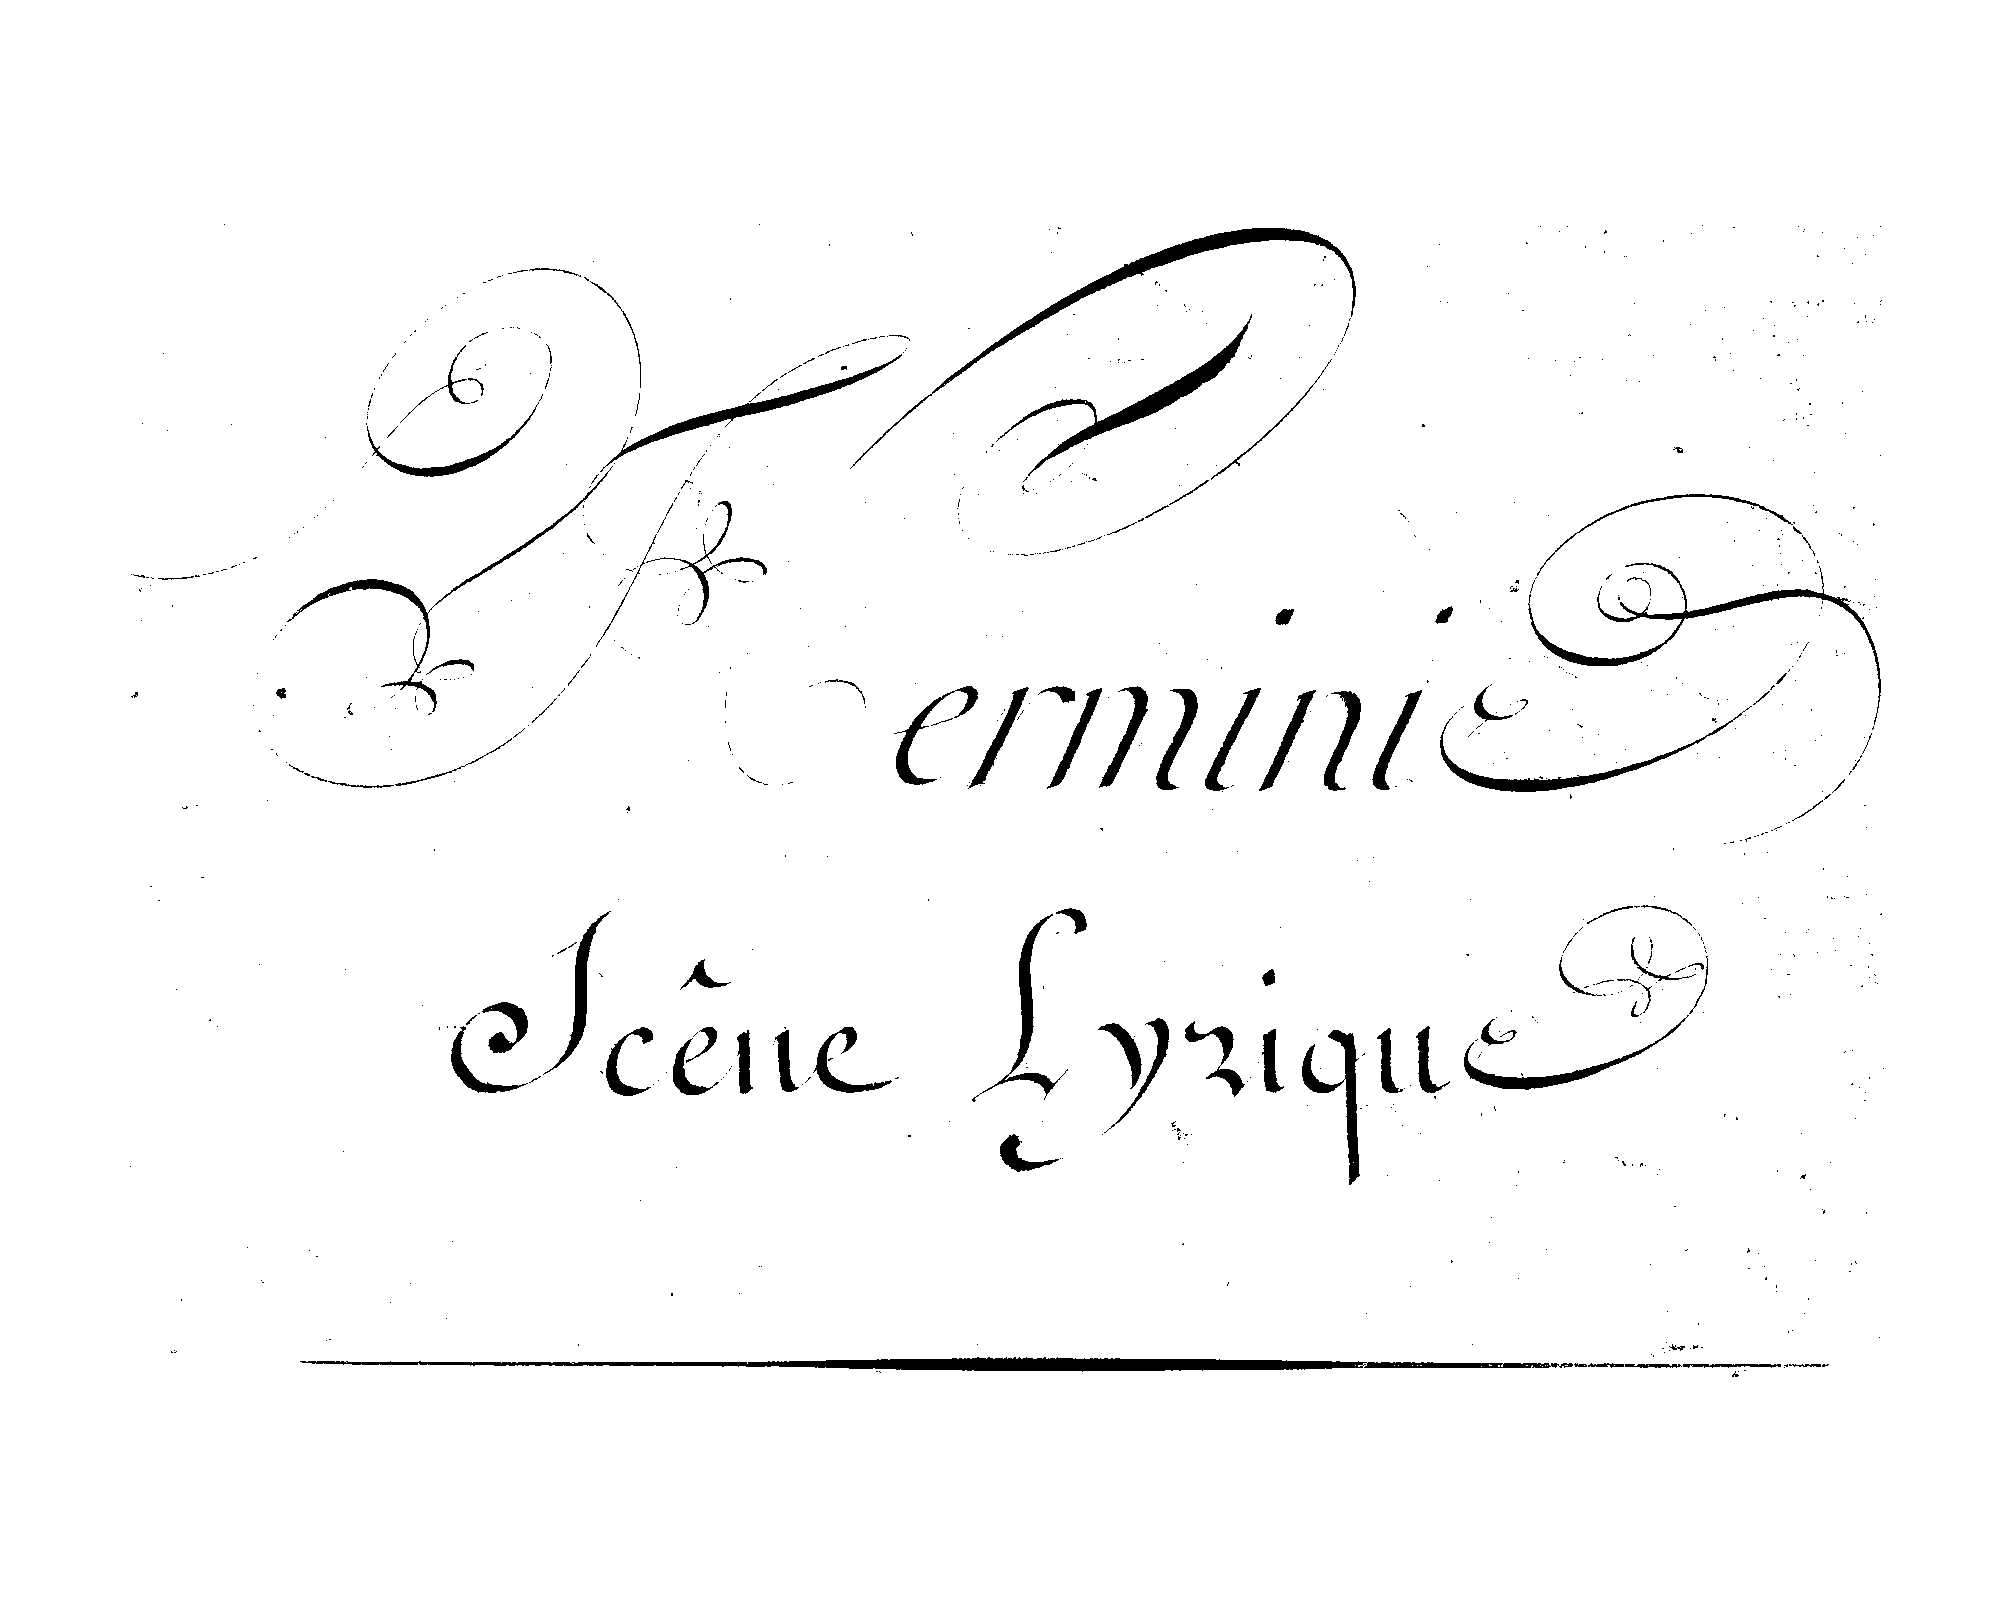 Herminie
Scêne Lyrique